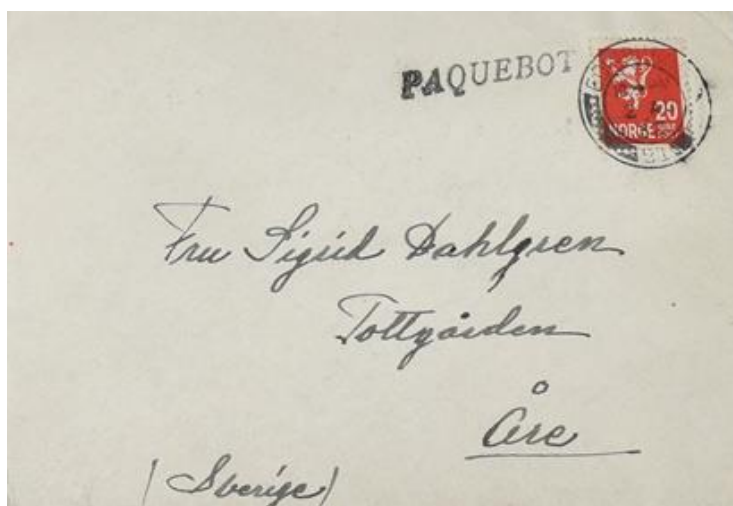 PAQUEBOT
20
NORGE
Fru Sigrid Dahlgren
Tottgården
Åre
(Sverige)